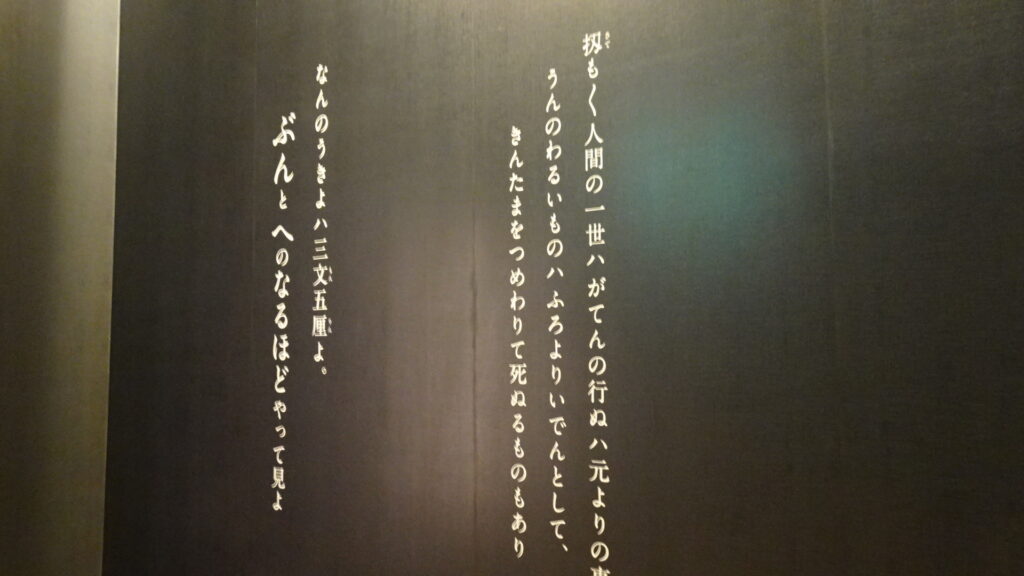 扨もく人間の一世ハがてんの行ぬハ元よりの
うんのわるいものハふろよりいでんとして、
きんたまをつめわりて死ぬるものもあり
なんのうきよハ三文五厘よ。
ぶんとへのなるほどやって見よ